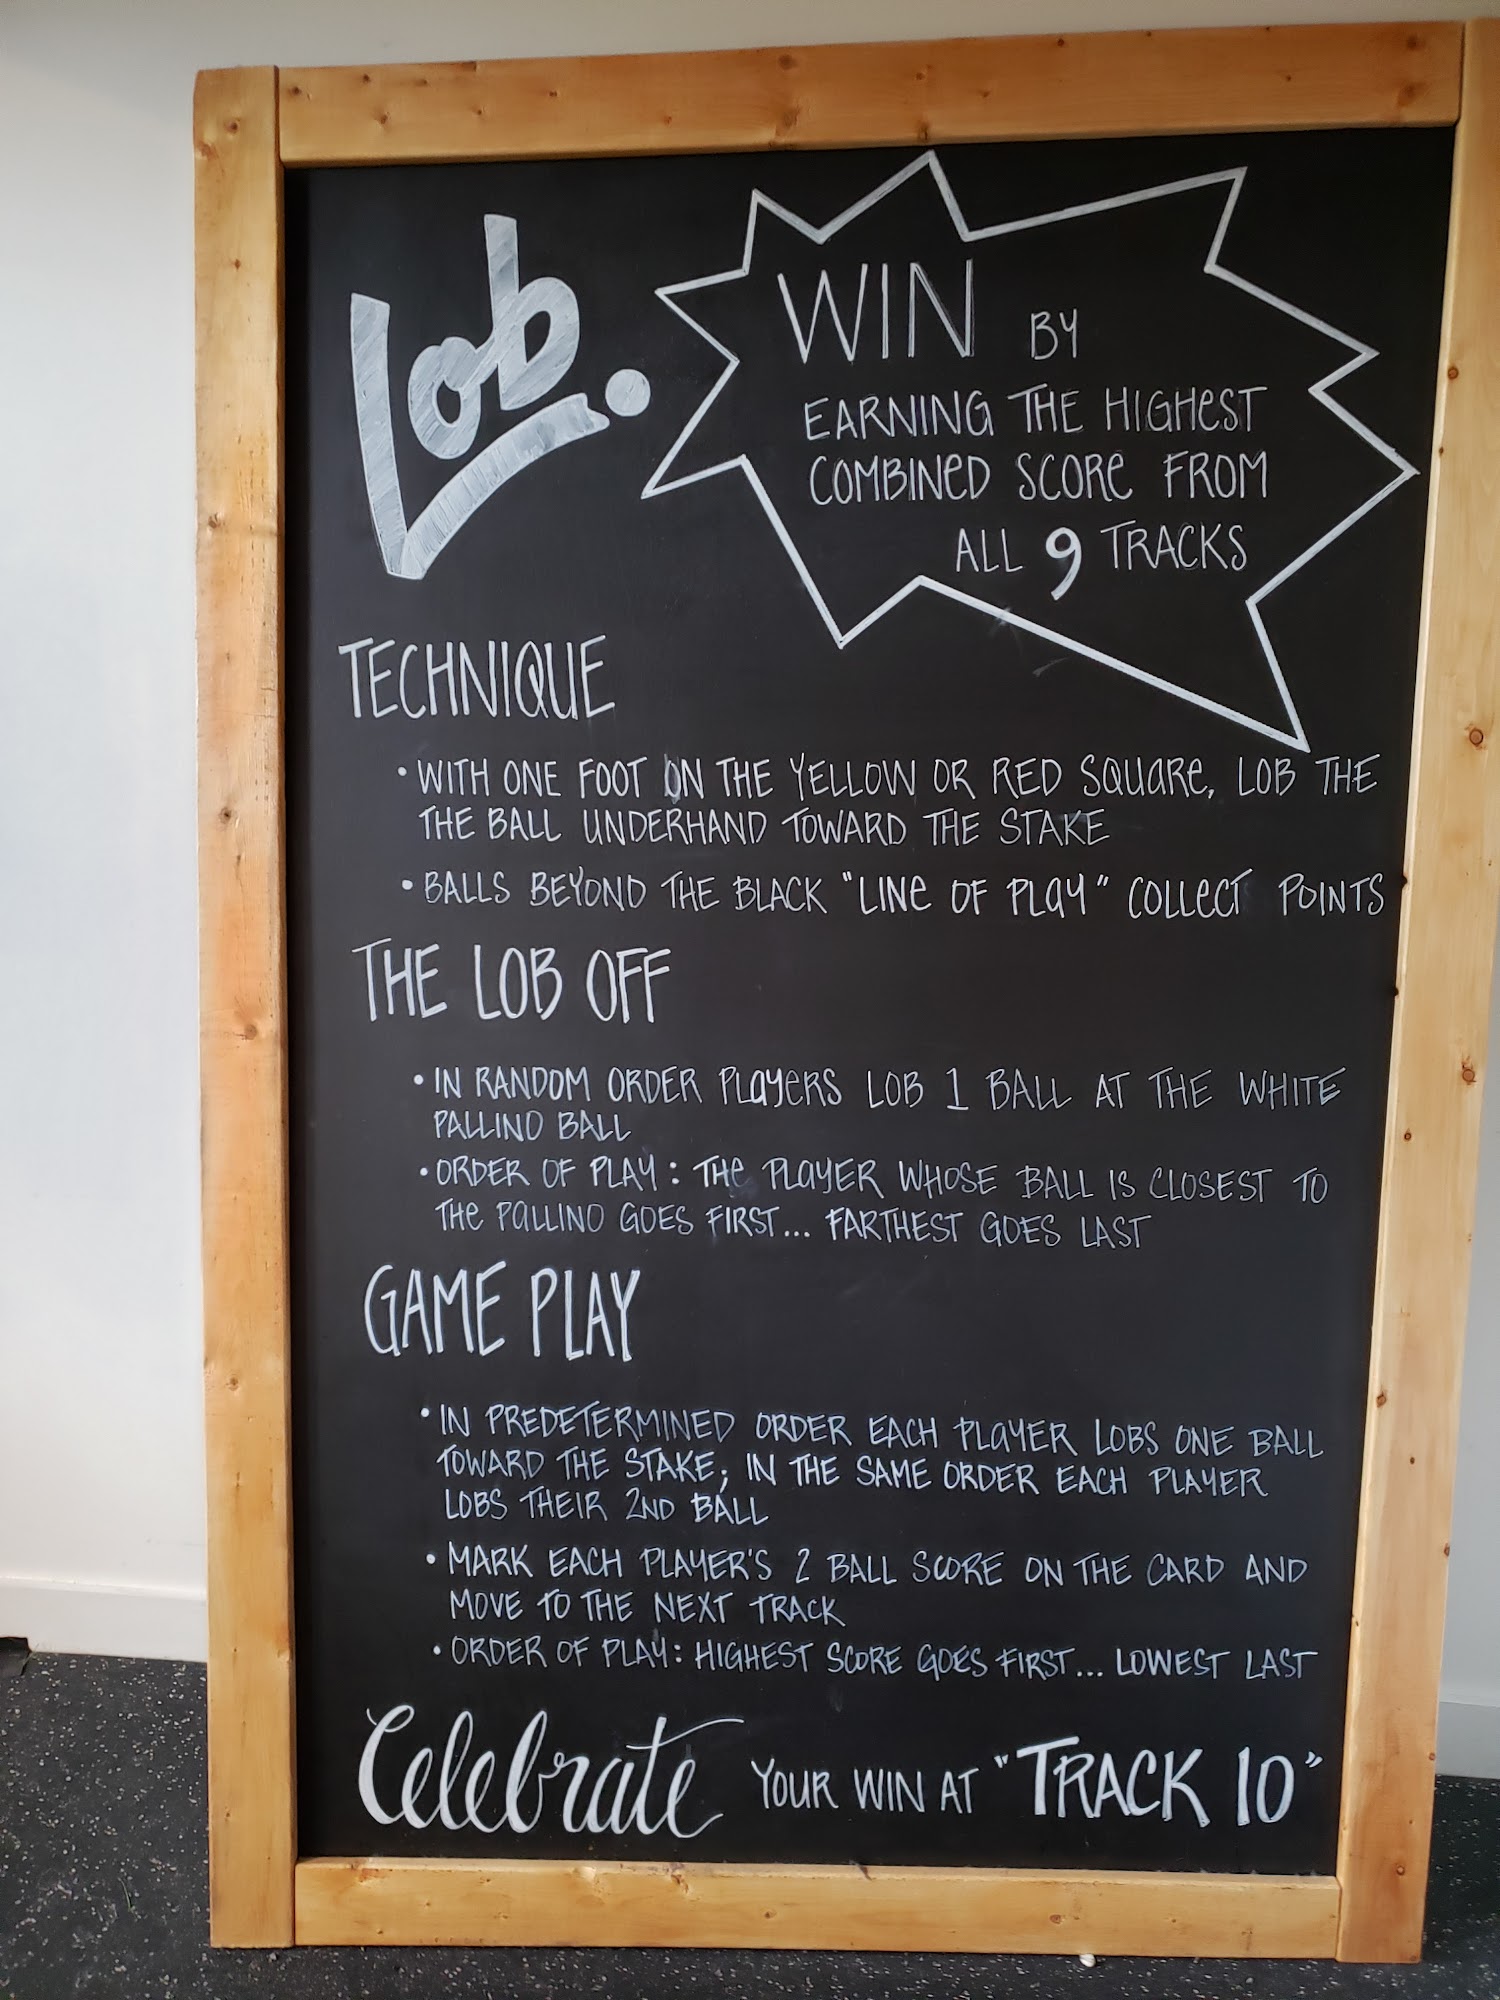 Lob.
WIN BY
EARNING THE HIGHEST
COMBINED SCORE FROM
ALL 9 TRACKS
TECHNIQUE
• WITH ONE FOOT ON THE YELLOW OR RED SQUARE, LOB THE
THE BALL UNDERHAND TOWARD THE STAKE
• BALLS BEYOND THE BLACK "LINE OF PLAY" COLLECT POINTS
THE LOB OFF
• IN RANDOM ORDER PLAYERS LOB 1 BALL AT THE WHITE
PALLINO BALL
• ORDER OF PLAY: THE PLAYER WHOSE BALL IS CLOSEST TO
THE PALLINO GOES FIRST... FARTHEST GOES LAST
GAME PLAY
• IN PREDETERMINED ORDER EACH PLAYER LOBS ONE BALL
TOWARD THE STAKE; IN THE SAME ORDER EACH PLAYER
LOBS THEIR 2ND BALL
• MARK EACH PLAYER'S 2 BALL SCORE ON THE CARD AND
MOVE TO THE NEXT TRACK
• ORDER OF PLAY: HIGHEST SCORE GOES FIRST... LOWEST LAST
Celebrate YOUR WIN AT "TRACK 10"